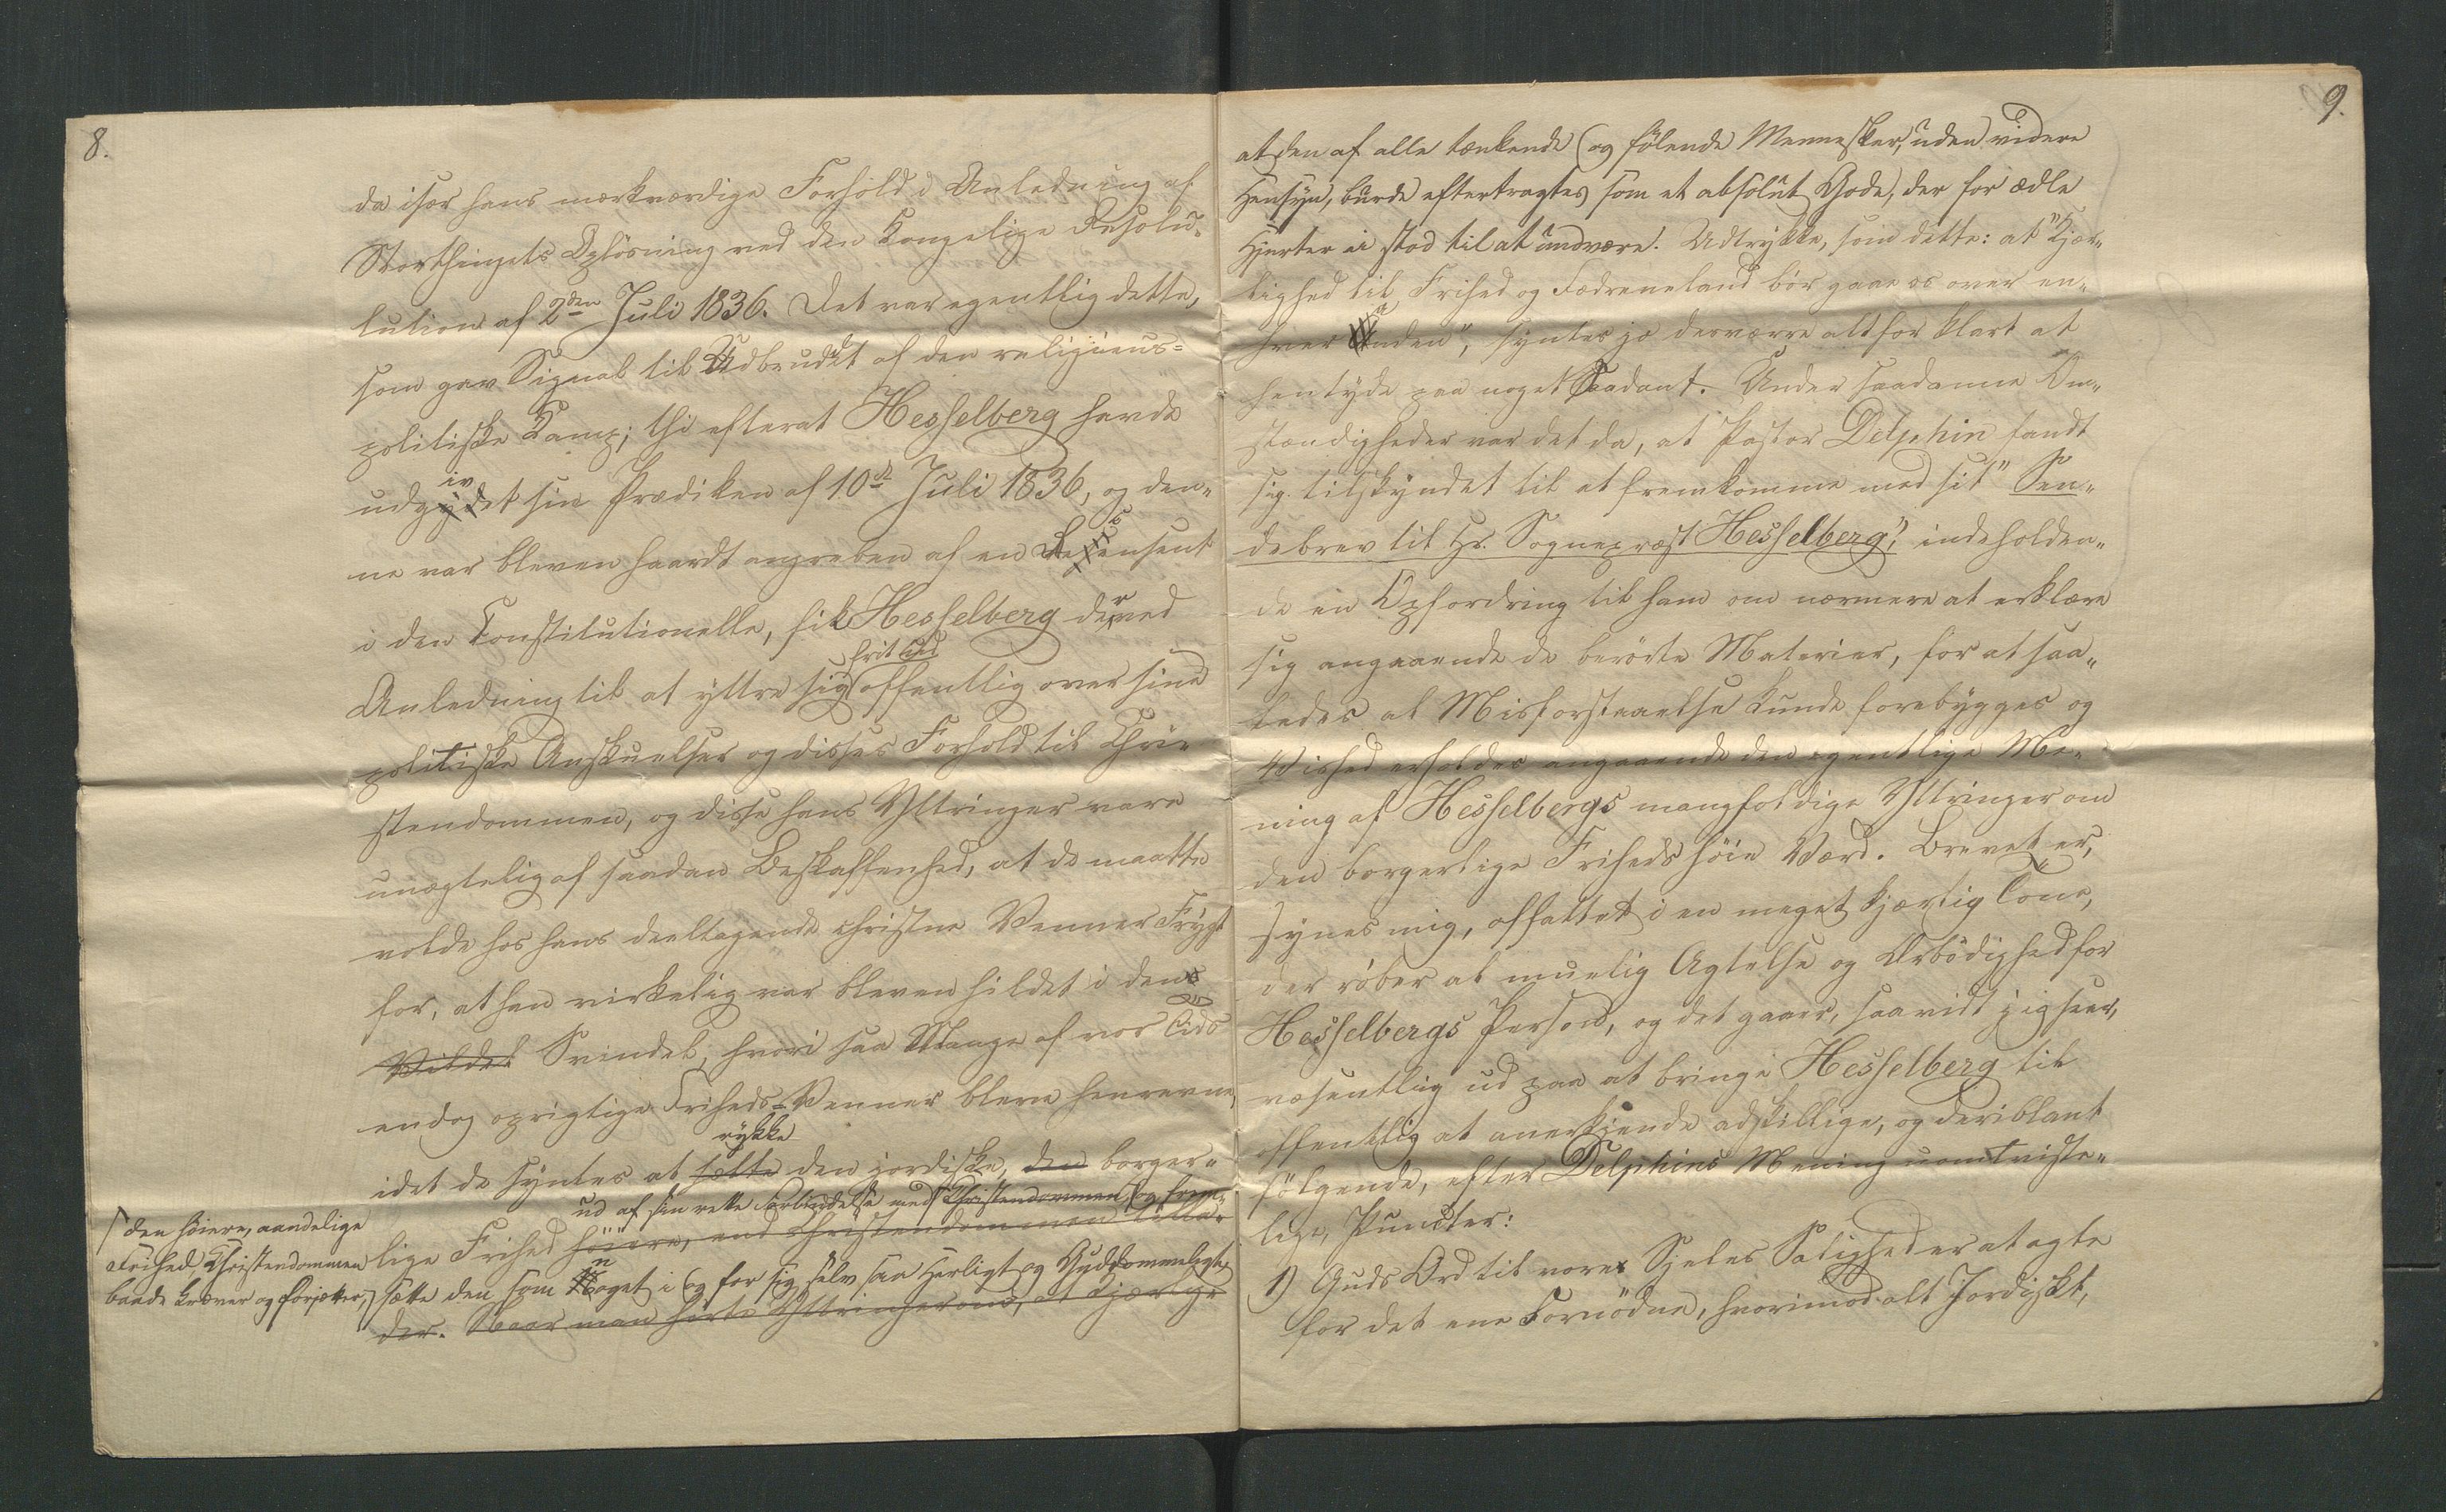 8.
da især hans mærkværdige Forhold i Anledning af
Storthingets Opløsning ved den Kongelige Resolu-
lution af 2den Juli 1836. Det var egentlig dette,
som gav Signal til Udbruddet af den religieus-
politiske Kamp; thi efterat Hesselberg havde
udgivet sin Prædiken af 10de Juli 1836, og den-
ne var bleven haardt angreben af en Recensent
i den Constitutionelle, fik Hesselberg derved
frit ud
Anledning til at yttre sig offentlig over sine
politiske Anskuelser og disses Forhold til Chri-
stendommen, og disse hans Yttringer vare
unægtelig af saadan Beskaffenhed, at de maatte
volde hos hans deeltagende christne Venner Frygt
for, at han virkelig var bleven hildet i den
Svindel, hvori saa Mange af vor Tids
endog oprigtige Friheds-Venner bleve henrevne,
rykke
idet de syntes at sætte den jordiske, den borger-
ud af sin rette Forbindelse med Christendommen og frem-
lige Frihed høiere, end Christendommen tilla-
den høiere, aandelige
Frihed, Christendommen
baade kræver og forjætter,
sætte den som noget i og for sig selv saa Herligt og Guddommeligt,
der. Naar man hørte Yttringer om, at Kjærlig-
9.
at den af alle tænkende og følende Mennesker, uden videre
Hensyn, burde eftertragtes som et absolut Gode, der for ædle
Hjerter ei stod til at undvære. Udtrykke, som dette: at "Kjær-
lighed til Frihed og Fædreneland bør gaae os over en-
hver anden", syntes jo desværre altfor klart at
hentyde paa noget Saadant. Under saadanne Om-
stændigheder var det da, at Pastor Delphin fandt
sig tilskyndet til at fremkomme med sit "Sen-
debrev til Hr. Sognepræst Hesselberg", indeholden-
de en Opfordring til ham om nærmere at erklære
sig angaaende de berørte Materier, for at saa-
ledes al Misforstaaelse kunde forebygges og
Vished erholdes angaaende den egentlige Me-
ning af Hesselbergs mangfoldige Yttringer om
den borgerlige Friheds høie Værd. Brevet er,
synes mig, affattet i en meget kjærlig Tone,
der røber al muelig Agtelse og Ærbødighed for
Hesselbergs Person, og det gaaer, saavidt jeg seer,
væsentlig ud paa at bringe Hesselberg til
offentlig at anerkjende adskillige, og deriblant
følgende, efter Delphins Mening uomtviste-
lige, Puncter:
1) Guds Ord til vore Sjeles Salighed er at agte
for det ene Fornødne, hvorimod alt Jordiskt,